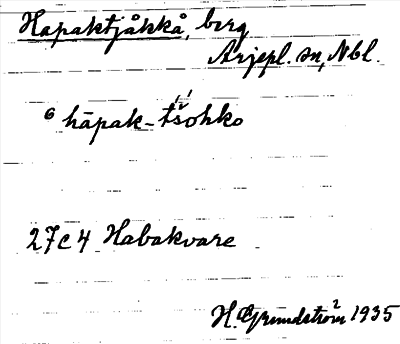 Hapaktjåkkå, berg
Arjepl. sn, Nbl.
6 hāpak-tšohko
27C4 Habakvare
H. Grundström 2 1935